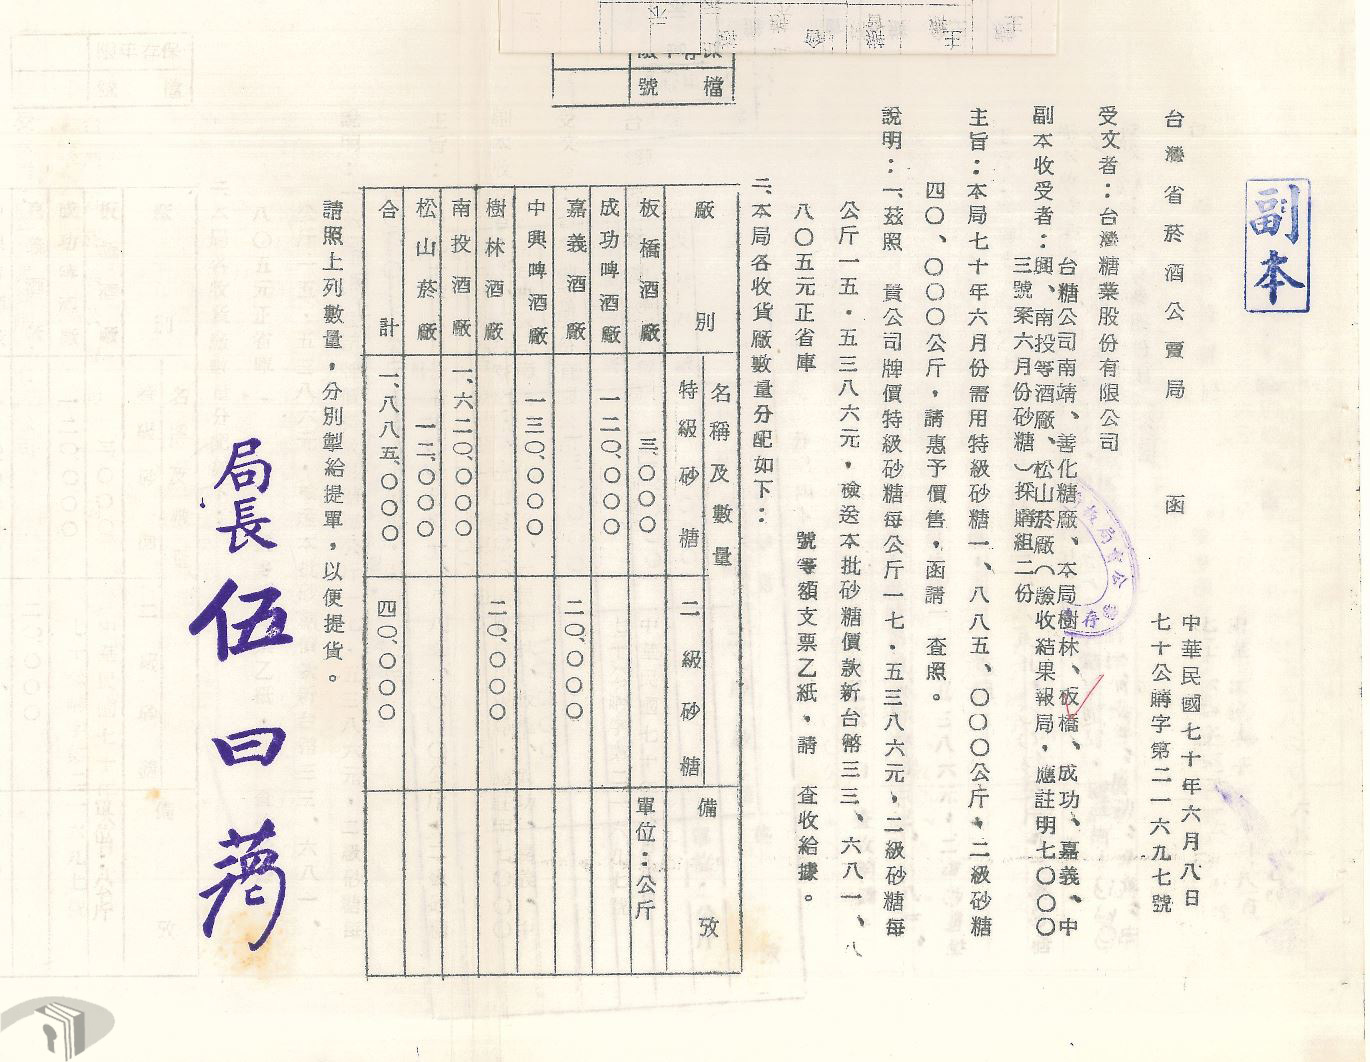 副本
檔號
保存年限
台灣省菸酒公賣局　函
中華民國七十年六月八日
七十公購字第二一六九七號
受文者：台灣糖業股份有限公司
副本收受者：台糖公司南靖、善化糖廠、本局樹林、板橋、成功、嘉義、中
興、南投等酒廠、松山菸廠（驗收結果報局，應註明七〇〇〇
三號案六月份砂糖）採購組二份
主旨：本局七十年六月份需用特級砂糖一、八八五、〇〇〇公斤，二級砂糖
四〇、〇〇〇公斤，請惠予價售，函請　查照。
說明：一、茲照　貴公司牌價特級砂糖每公斤一七．五三八六元，二級砂糖每
公斤一五．五三八六元，檢送本批砂糖價款新台幣三三、六八一、八
八〇五元正省庫　號等額支票乙紙，請　查收給據。
二、本局各收貨廠數量分配如下：
廠別　名稱及數量　特級砂糖　二級砂糖　備攷
板橋酒廠　三、〇〇〇　單位：公斤
成功啤酒廠　一二〇、〇〇〇
嘉義酒廠　二〇、〇〇〇
中興啤酒廠　一三〇、〇〇〇
樹林酒廠　二〇、〇〇〇
南投酒廠　一、六二〇、〇〇〇
松山菸廠　一二、〇〇〇
合計　一、八八五、〇〇〇　四〇、〇〇〇
請照上列數量，分別掣給提單，以便提貨。
局長　伍曰藹